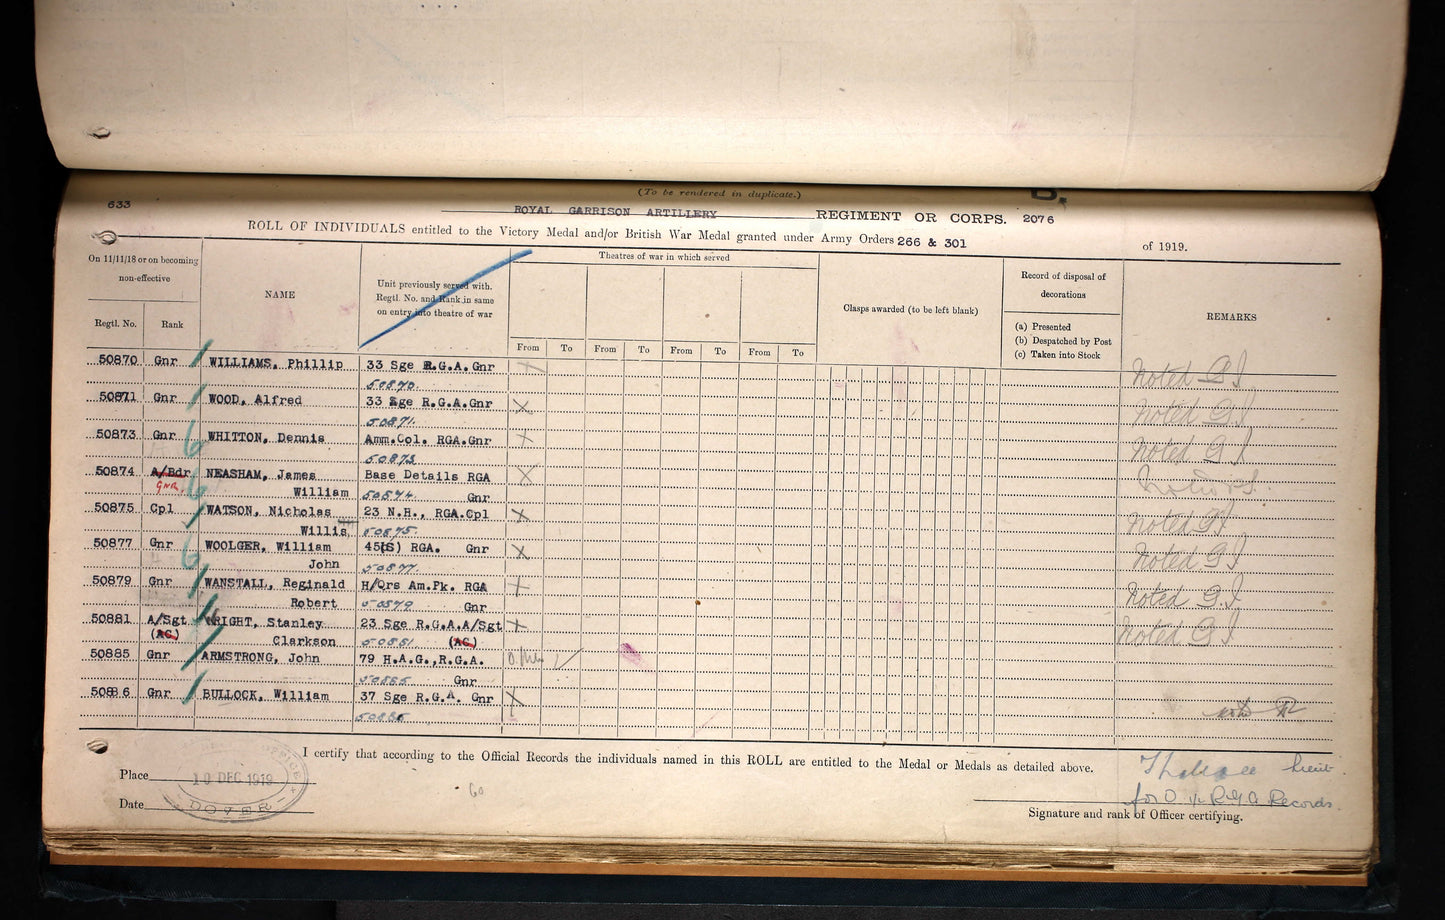 (To be rendered in duplicate.)
633 ROYAL GARRISON ARTILLERY REGIMENT OR CORPS. 2076
ROLL OF INDIVIDUALS entitled to the Victory Medal and/or British War Medal granted under Army Orders 266 & 301 of 1919.
On 11/11/18 or on becoming non-effective
NAME
Unit previously served with. Regtl. No. and Rank in same on entry into theatre of war
Theatres of war in which served
Clasps awarded (to be left blank)
Record of disposal of decorations
REMARKS
(a) Presented
(b) Despatched by Post
(c) Taken into Stock
Regtl. No. Rank From To From To From To From To
50870 Gnr 1 WILLIAMS, Phillip 33 Sge R.G.A. Gnr Noted G I
50870.
50871 Gnr 1 WOOD, Alfred 33 Sge R.G.A. Gnr X Noted G I
50871.
50873 Gnr 6 WHITTON, Dennis Amm.Col. RGA.Gnr X Noted G I
50873
50874 A/Bdr NEASHAM, James Base Details RGA X
GNR. 6 William 50874. Gnr
50875 Cpl WATSON, Nicholas 23 N.H., RGA.Cpl X Noted
Willis 50875.
50877 Gnr 6 WOOLGER, William 45(S) RGA. Gnr X Noted G I
John 50877
50879 Gnr 1 WANSTALL, Reginald H/Qrs Am.Pk. RGA X Noted G.I
Robert 50879 Gnr
50881 A/Sgt WRIGHT, Stanley 23 Sge R.G.A.A/Sgt X Noted G I
(AC) Clarkson 50881 (AC)
50885 Gnr ARMSTRONG, John 79 H.A.G.,R.G.A.
50885 Gnr
50886 Gnr 1 BULLOCK, William 37 Sge R.G.A. Gnr X
I certify that according to the Official Records the individuals named in this ROLL are entitled to the Medal or Medals as detailed above.
Place
10 DEC 1919
DOVER
Date
60
Lieut.
for O. i/c RGA Records.
Signature and rank of Officer certifying.